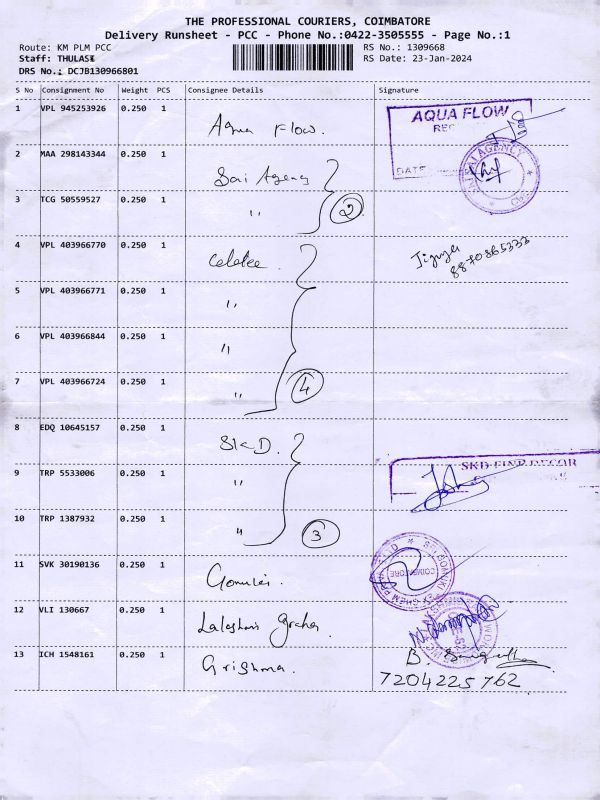 THE PROFESSIONAL COURIERS, COIMBATORE
Delivery Runsheet - PCC - Phone No.:0422-3505555 - Page No.:1
Route: KM PLM PCC RS No.: 1309668
Staff: THULASI RS Date: 23-Jan-2024
DRS No.: DCJB130966801
S No Consignment No Weight PCS Consignee Details Signature
1 VPL 945253926 0.250 1 Aqua Flow. AQUA FLOW
2 MAA 298143344 0.250 1 Sai Agency SAI AGENCY
DATE
3 TCG 50559527 0.250 1 " 2
4 VPL 403966770 0.250 1 8870865333
5 VPL 403966771 0.250 1 "
6 VPL 403966844 0.250 1 "
7 VPL 403966724 0.250 1 " 4
8 EDQ 10645157 0.250 1 SKD.
9 TRP 5533006 0.250 1 " SKD FINE DECOR
10 TRP 1387932 0.250 1 " 3
11 SVK 30190136 0.250 1 COIMBATORE
12 VLI 130667 0.250 1
13 ICH 1548161 0.250 1 Grishma. B.
7204225762